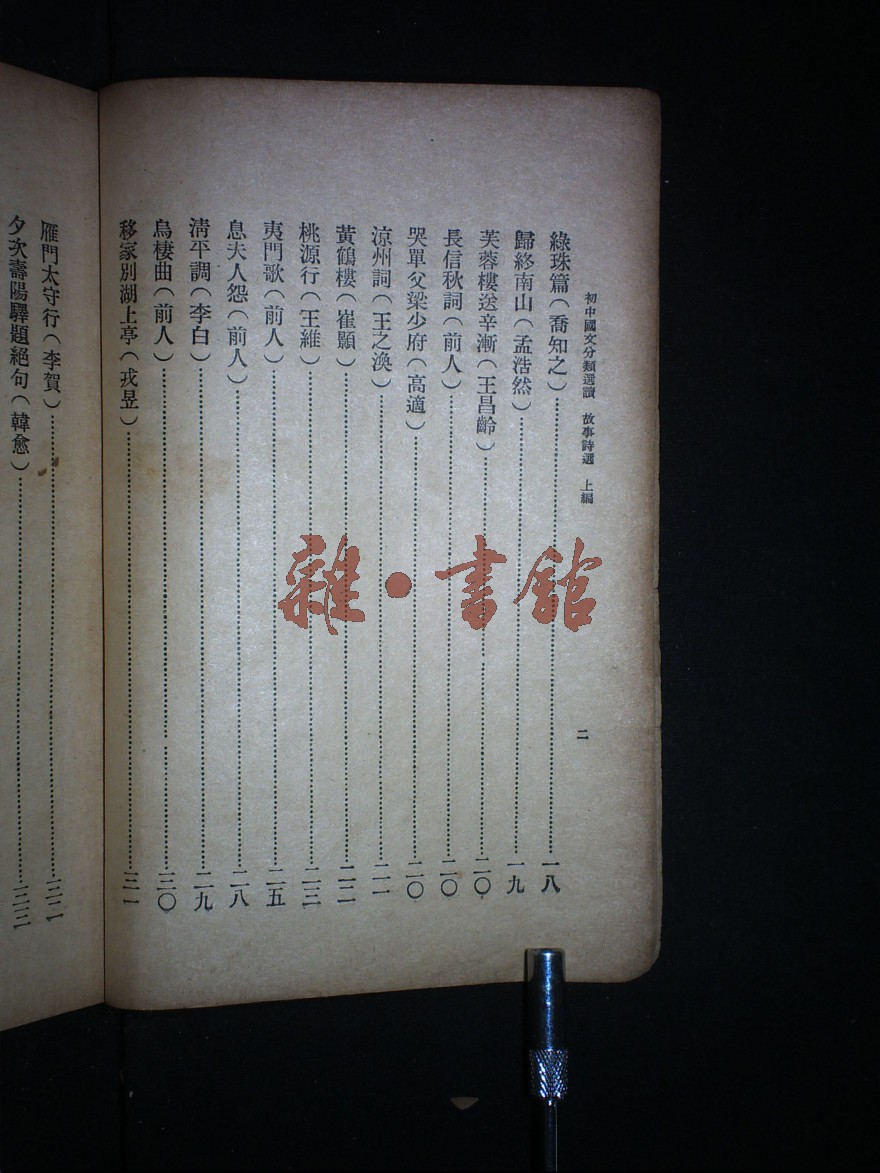 初中國文分類選讀 故事詩選 上編 二
綠珠篇(喬知之)……一八
歸終南山(孟浩然)……一九
芙蓉樓送辛漸(王昌齡)……二〇
長信秋詞(前人)……二〇
哭單父梁少府(高適)……二〇
涼州詞(王之渙)……二一
黃鶴樓(崔顥)……二二
桃源行(王維)……二三
夷門歌(前人)……二五
息夫人怨(前人)……二八
清平調(李白)……二九
烏棲曲(前人)……三〇
移家別湖上亭(戎昱)……三一
雁門太守行(李賀)……三二
夕次壽陽驛題絕句(韓愈)……三三
雜·書館